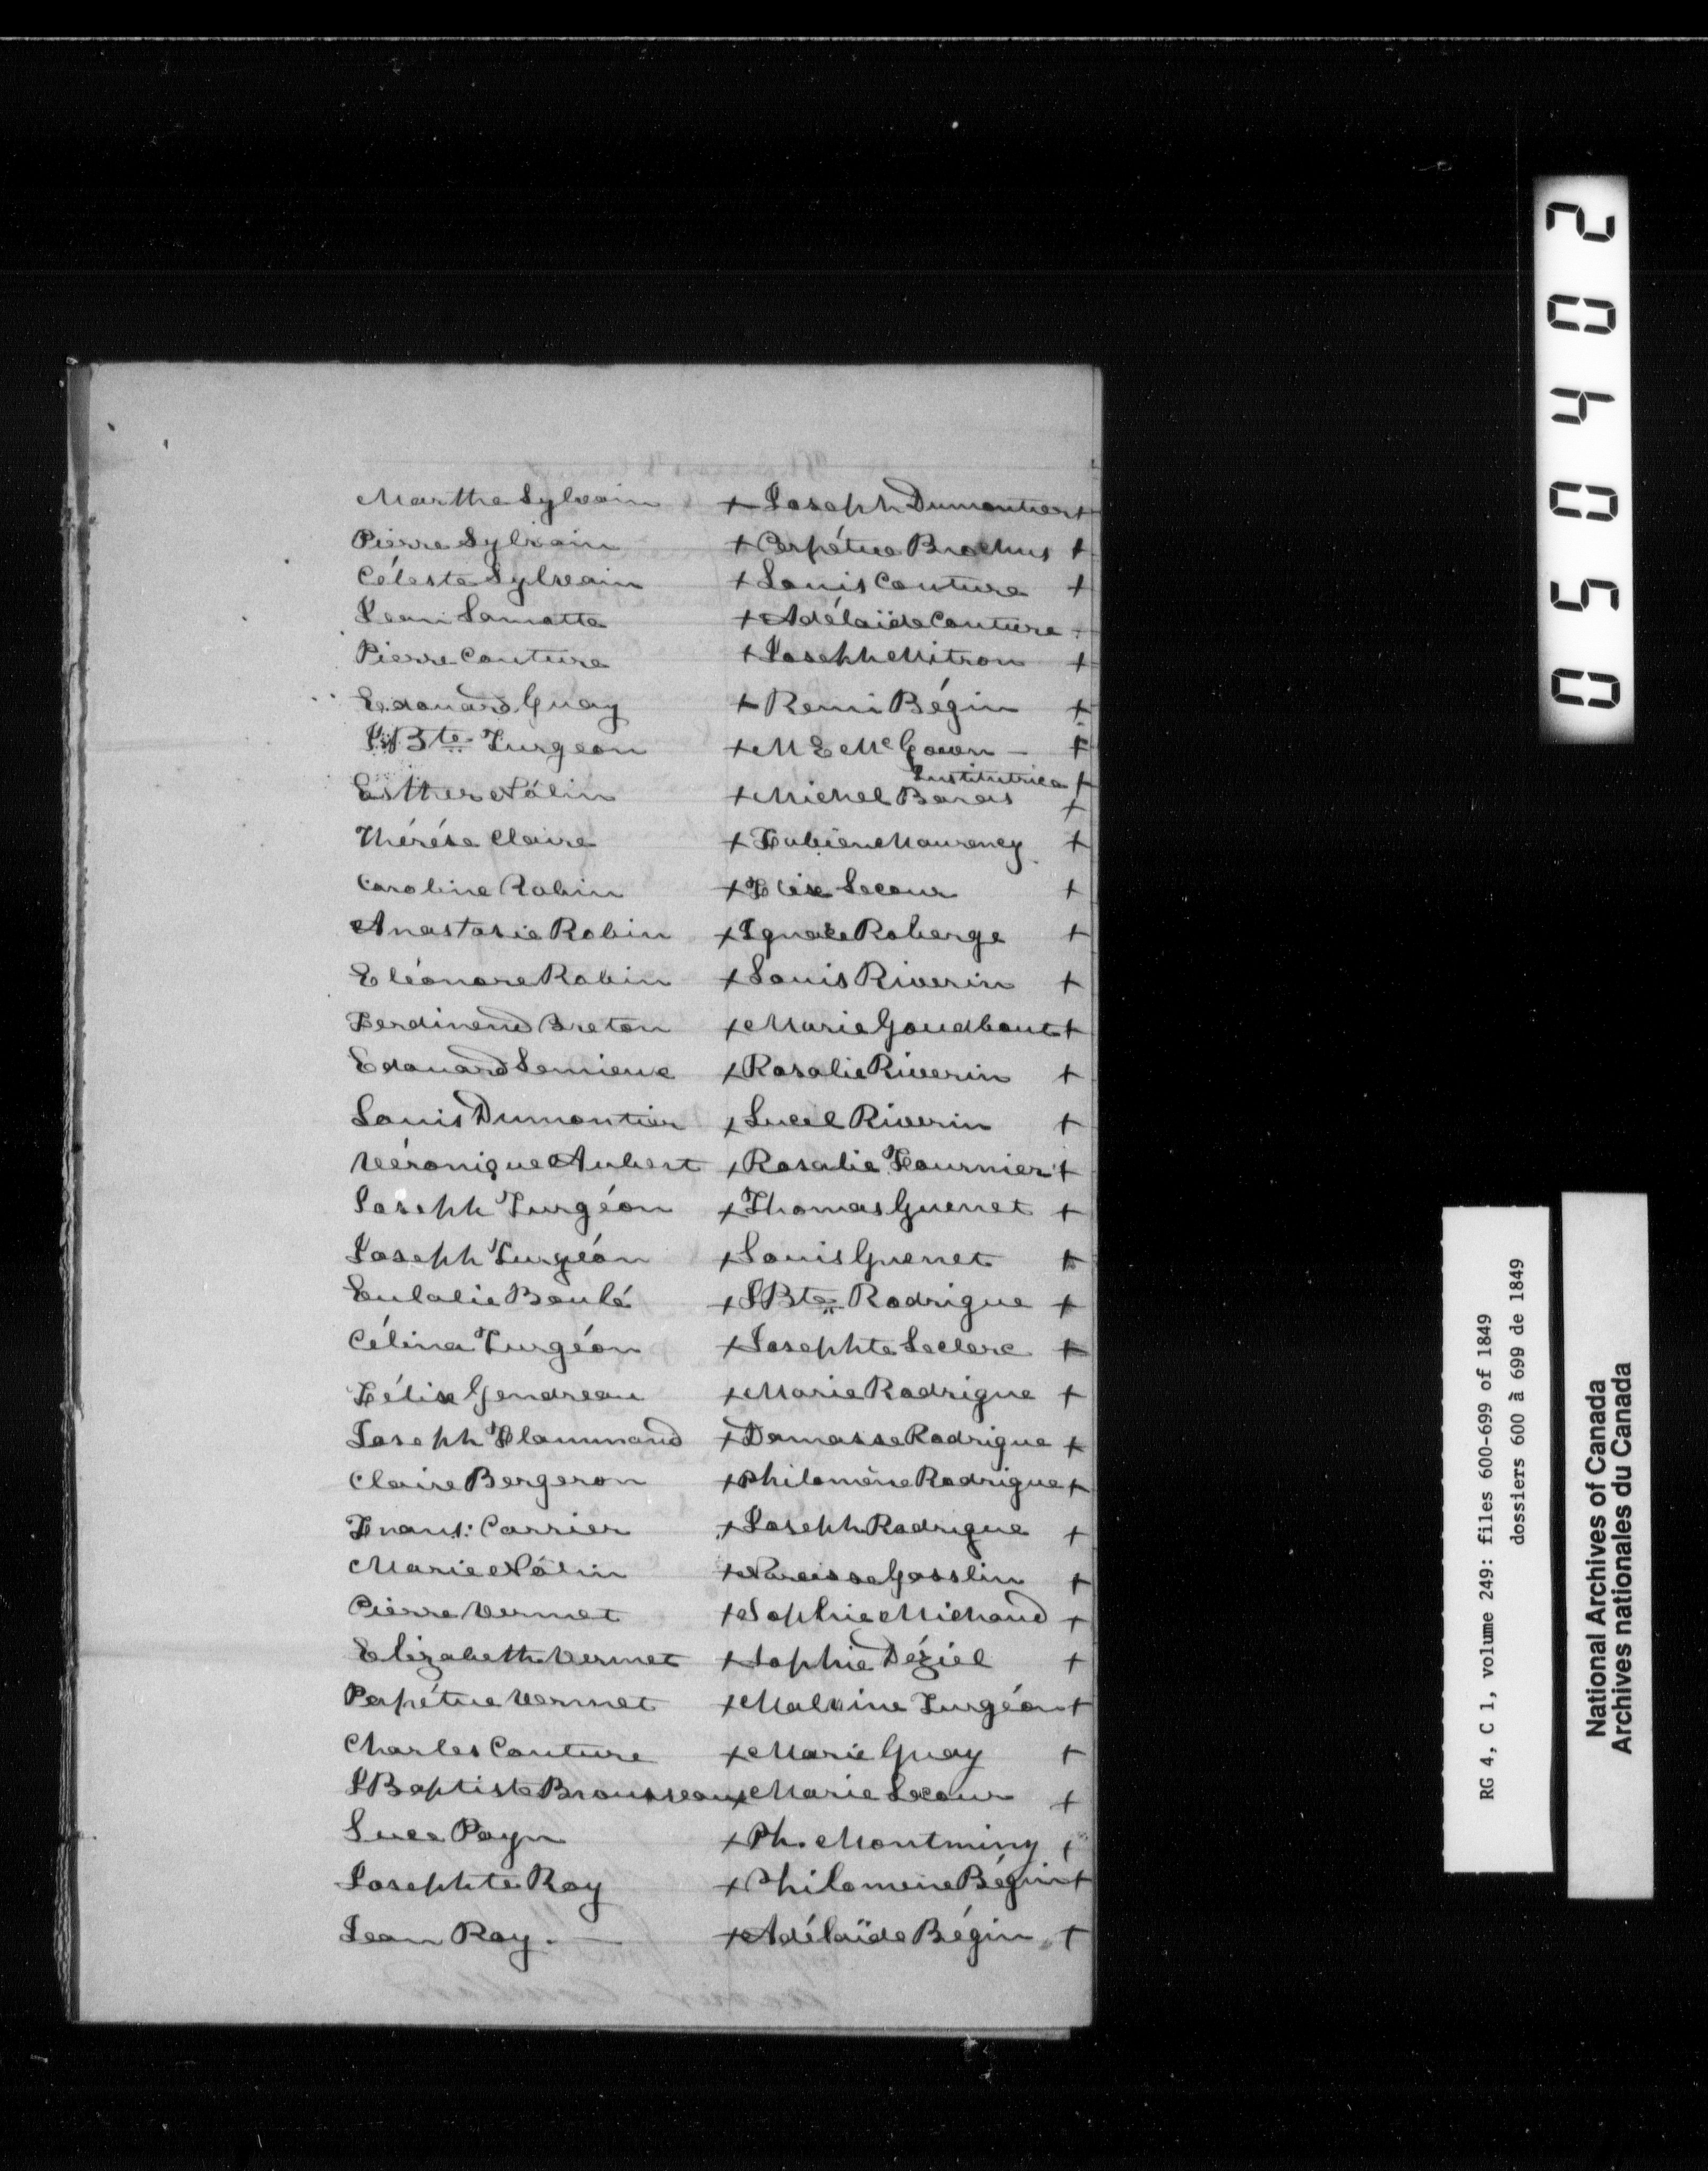 Marthe Sylvain + Joseph Dumontier +
Pierre Sylvain + Perpétue Brochus +
Céleste Sylvain + Louis Couture +
Jean Lamotte + Adélaïde Couture
Pierre Couture + Joseph Mitron +
Edouard Guay + Remi Bégin +
J. Bte. Turgeon + M E McGowan — +
Institutrice +
Esther Nólin + Michel Barais +
Thérése Claire + Fabiène +
Caroline Robin + Lecour +
Anastasie Robin + Ignace Roberge +
Eléonore Robin + Louis Riverin +
Ferdinend Breton + Marie Goudbout +
Edouard Lemieux + Rosalie Riverin +
Louis Dumontier + Lucel Riverin +
Véronique Aubert + Rosalie Fournier +
Joseph Turgéon + Thomas Guenet +
Joseph Turgéon + Louis Guenet +
Eulalie Boulé + J Bte Rodrigue +
Célina Turgéon + Josephte Leclerc +
Félix Gendreau + Marie Rodrigue +
Joseph Flammand + Damasse Rodrigue +
Claire Bergeron + Philomène Rodrigue +
Frans: Carrier + Joseph Rodrigue +
Marie Nólin + Narcisse Gosslin +
Pierre Vermet + Sophie Michaud +
Elizabeth Vermet + Sophie Déziel +
Perpétue Vermet + Malvine Turgéon +
Charles Couture + Marie Guay +
J Baptiste Brousseau + Marie Lecour +
Luce Payn + Ph. Montminy +
Josephte Roy + Philomene Bégin +
Jean Roy. — + Adélaïde Bégin +
05042
RG 4, C 1, volume 249: files 600-699 of 1849
dossiers 600 à 699 de 1849
National Archives of Canada
Archives nationales du Canada